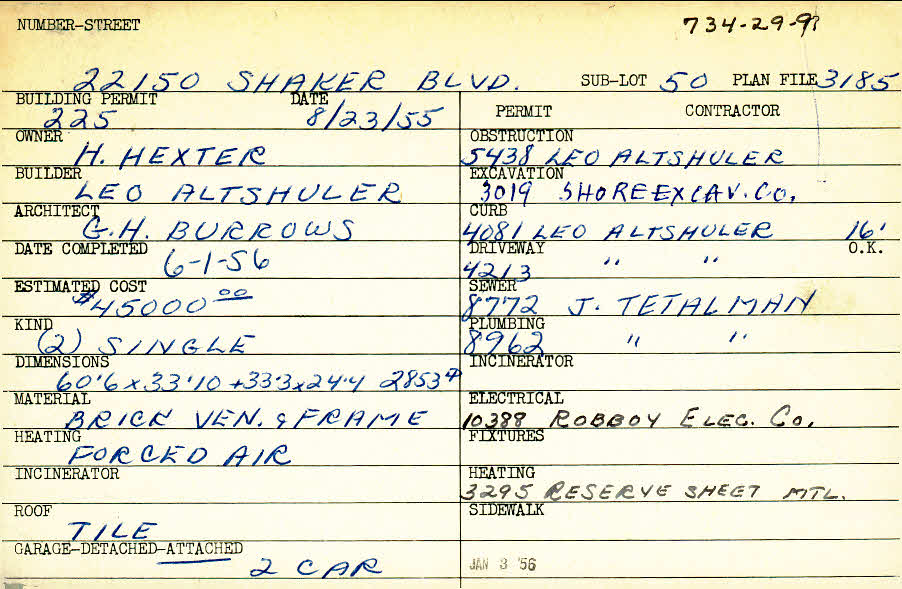 NUMBER-STREET 734-29-9
22150 SHAKER BLVD. SUB-LOT 50 PLAN FILE 3185
BUILDING PERMIT DATE
225 8/23/55
OWNER
H. HEXTER
BUILDER
LEO ALTSHULER
ARCHITECT
G.H. BURROWS
DATE COMPLETED
6-1-56
ESTIMATED COST
$45000.00
KIND
(2) SINGLE
DIMENSIONS
60'6 x 33'10 + 33'3 x 24'4 2853
MATERIAL
BRICK VEN. & FRAME
HEATING
FORCED AIR
INCINERATOR
ROOF
TILE
GARAGE-DETACHED-ATTACHED
2 CAR
PERMIT CONTRACTOR
OBSTRUCTION
5438 LEO ALTSHULER
EXCAVATION
3019 SHORE EXCAV. CO.
CURB
4081 LEO ALTSHULER 16'
DRIVEWAY O.K.
4213 " "
SEWER
8772 J. TETALMAN
PLUMBING
8962 " "
INCINERATOR
ELECTRICAL
10388 ROBBOY ELEC. CO.
FIXTURES
HEATING
3295 RESERVE SHEET MTL.
SIDEWALK
JAN 3 '56